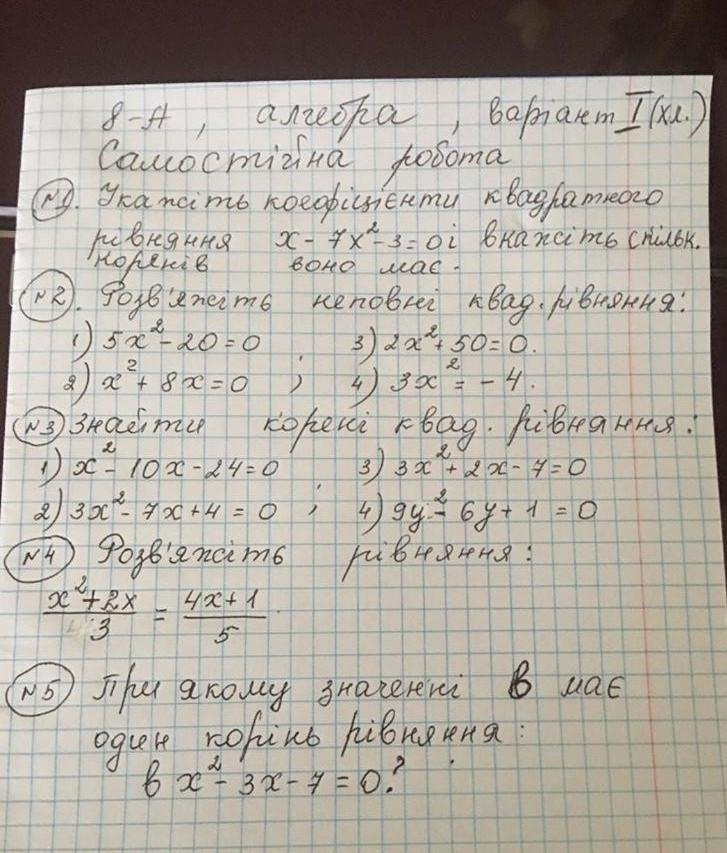 8-А, алгебра, варіант I (хл.)
Самостійна робота
№1. Укажіть коефіцієнти квадратного
рівняння x - 7x² - 3 = 0 і вкажіть спільк.
коренів воно має.
№2. Розв'яжіть неповні квад. рівняння:
1) 5x² - 20 = 0 ; 3) 2x² + 50 = 0.
2) x² + 8x = 0 ; 4) 3x² = -4.
№3 Знайти корені квад. рівняння:
1) x² - 10x - 24 = 0 ; 3) 3x² + 2x - 7 = 0
2) 3x² - 7x + 4 = 0 ; 4) 9y² - 6y + 1 = 0
№4 Розв'яжіть рівняння:
x² + 2x / 3 = 4x + 1 / 5
№5 При якому значенні в має
один корінь рівняння:
в x² - 3x - 7 = 0?